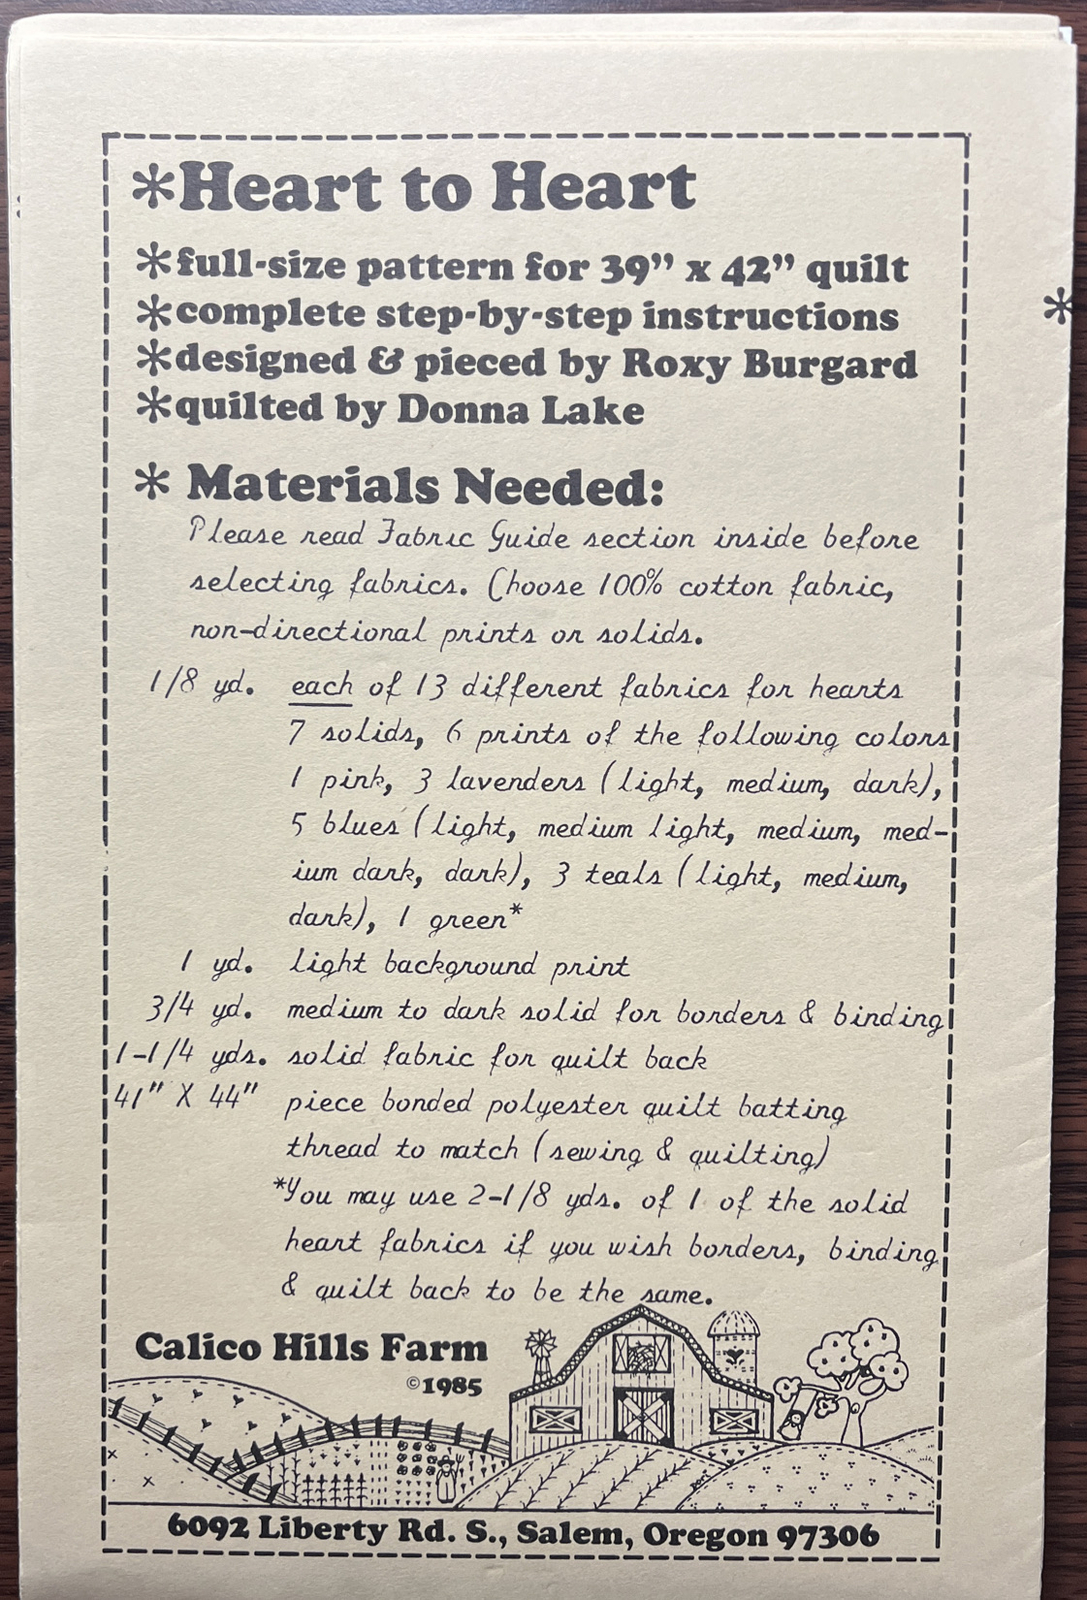 *Heart to Heart
*full-size pattern for 39" x 42" quilt
*complete step-by-step instructions
*designed & pieced by Roxy Burgard
*quilted by Donna Lake
* Materials Needed:
Please read Fabric Guide section inside before
selecting fabrics. Choose 100% cotton fabric,
non-directional prints or solids.
1/8 yd. each of 13 different fabrics for hearts
7 solids, 6 prints of the following colors
1 pink, 3 lavenders (light, medium, dark),
5 blues (light, medium light, medium, med-
ium dark, dark), 3 teals (light, medium,
dark), 1 green*
1 yd. light background print
3/4 yd. medium to dark solid for borders & binding
1-1/4 yds. solid fabric for quilt back
41" X 44" piece bonded polyester quilt batting
thread to match (sewing & quilting)
*You may use 2-1/8 yds. of 1 of the solid
heart fabrics if you wish borders, binding
& quilt back to be the same.
Calico Hills Farm
©1985
6092 Liberty Rd. S., Salem, Oregon 97306
*